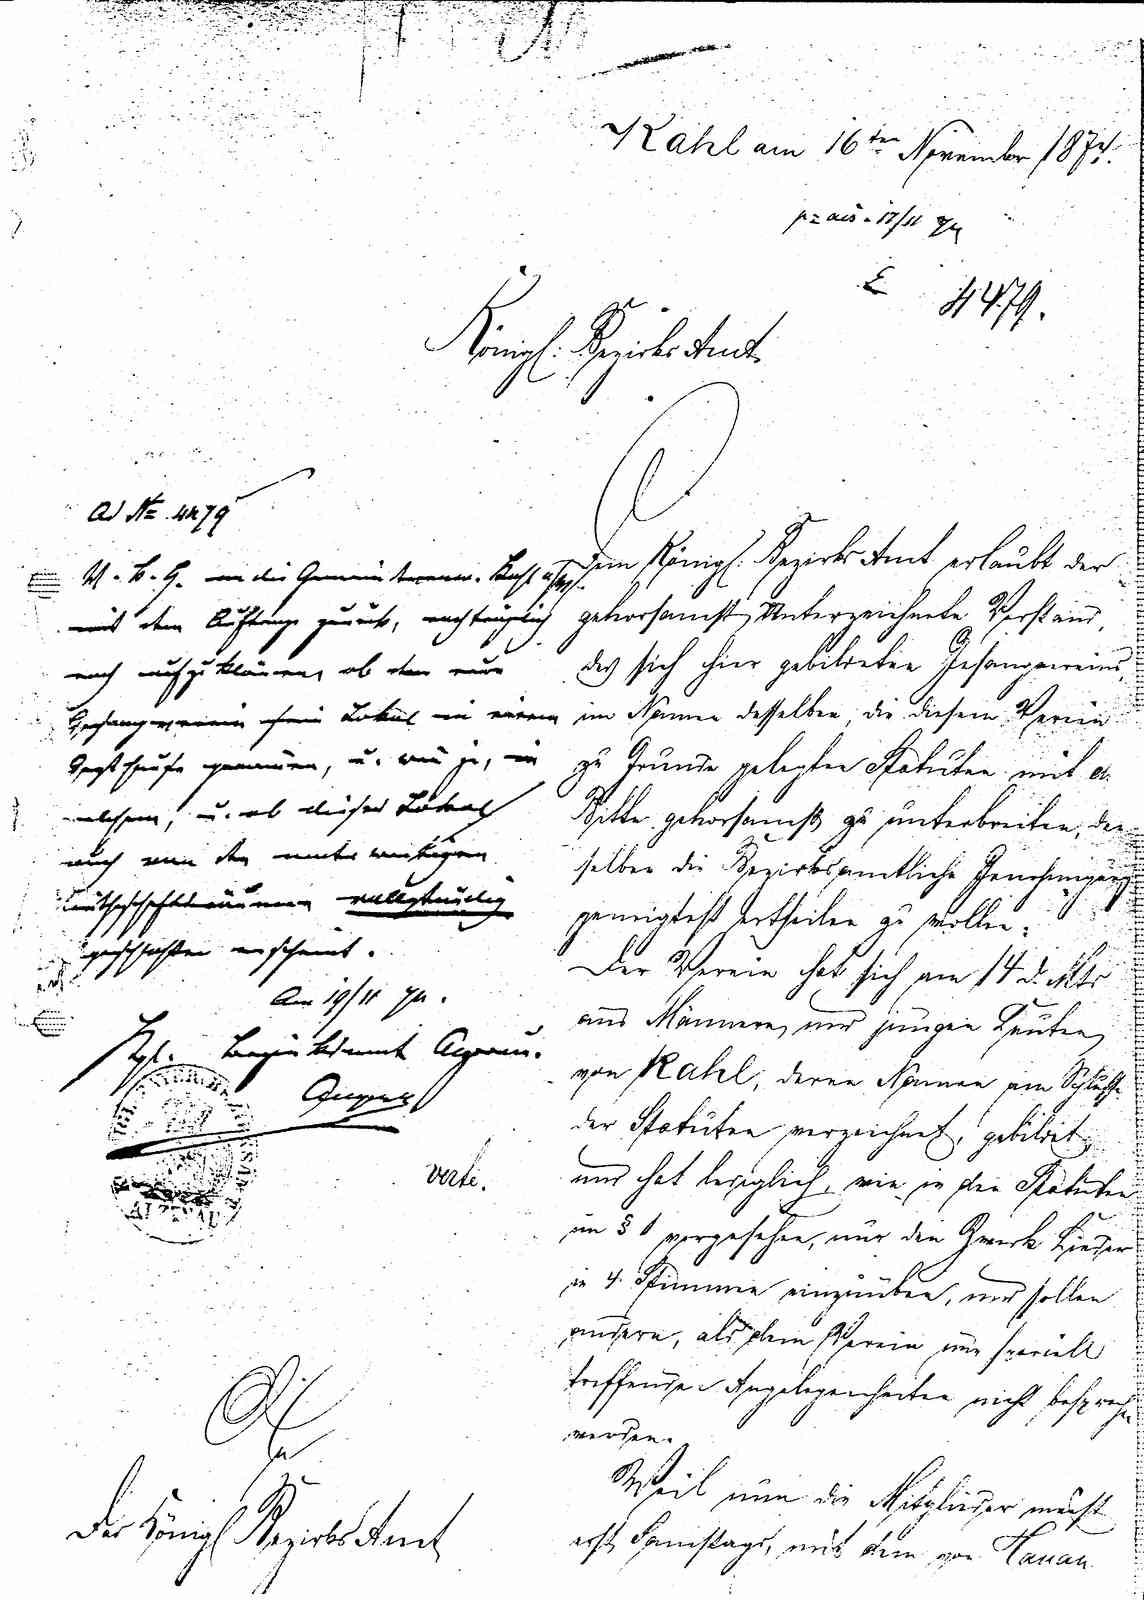 Kahl am 16ten November 1874.
17/11 74
E 4479.
Königl. Bezirks Amt
Dem Königl. Bezirks Amt erlaubt der
gehorsamst Unterzeichnete Vorstand,
des sich hier gebildeten Gesangvereins,
im Namen desselben, die diesem Verein
zu Grunde gelegten Statuten mit d.
Bitte gehorsamst zu unterbreiten, den-
selben die Bezirksamtliche Genehmigung
geneigtest ertheilen zu wollen.
Der Verein hat sich am 14 d. Mts
aus Männern und jungen Leuten
von Kahl, deren Namen am Schlusse
der Statuten verzeichnet, gebildet,
und hat lediglich, wie in den Statuten
im § 1 vorgesehen, nur den Zweck Lieder
in 4. Stimmen einzuüben, und sollen
andern, als dem Verein nur speciell
treffenden Angelegenheiten nicht besprochen
werden.
Weil nun die Mitglieder meist
erst Samstags, mit dem von Hanau
ad No 4479
an die Gemeindeverw. Kahl
mit dem Auftrage zurück, nachträglich
noch aufzuklären, ob der neue
Gesangverein sein Lokal in einem
Gasthause genommen, u. wenn ja, in
welchem, u. ob dieses Lokal
auch von den unterwärtigen
Wirthschaftsräumen vollständig
geschlossen erscheint.
Am 19/11 74.
Kgl. Bezirksamt Alzenau.
verte.
An
Das Königl Bezirks Amt